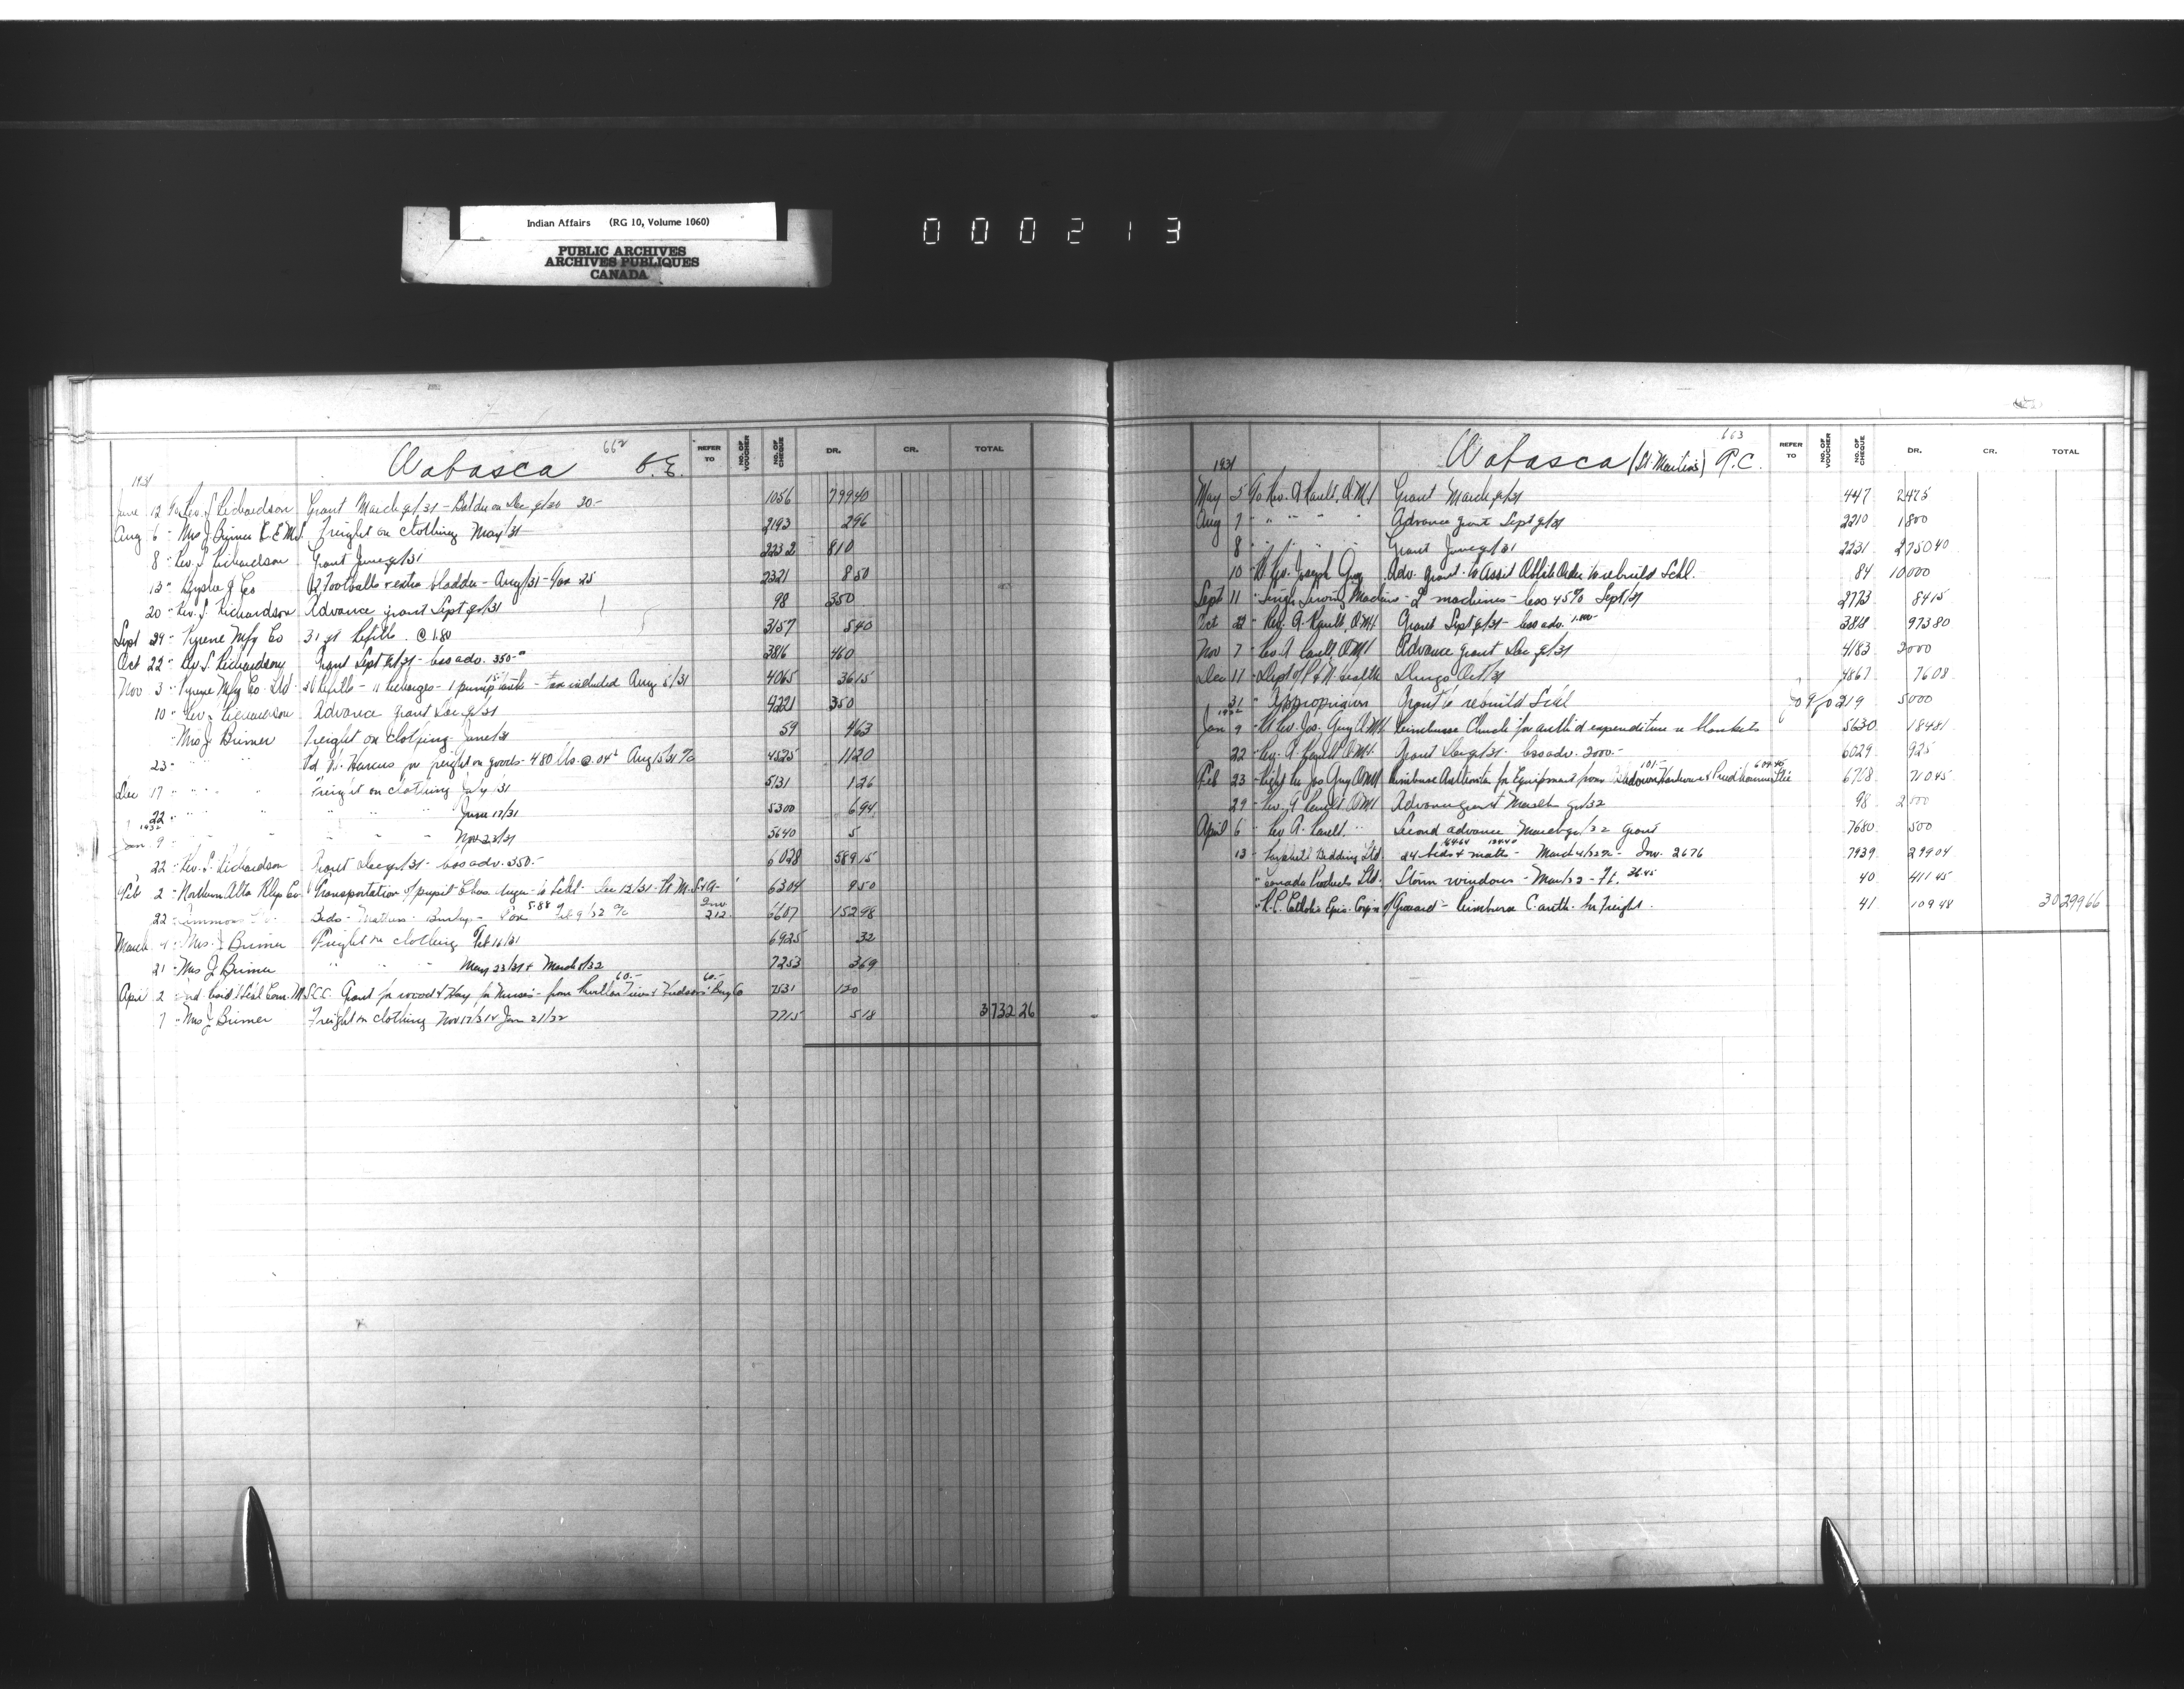 Indian Affairs (RG 10, Volume 1060)
PUBLIC ARCHIVES
ARCHIVES PUBLIQUES
CANADA
000213
Wabasca 662 C.E.
REFER TO NO. OF VOUCHER NO. OF CHEQUE DR. CR. TOTAL
1931
June 12 Rev. S. Richardson Grant March qr/31 - Bal due on Dec qr/30 30- 1056 799 40
Aug 6 - Mrs J. Brimer Freight on clothing May/31 2193 2 96
8 - Rev. S. Richardson Grant June qr/31 2232 810
13 - Co 2 Footballs extra bladder - Aug/31 - 25 2321 8 50
20 - Rev. S. Richardson Advance grant Sept qr/31 98 350
Sept 29 - Pyrene Mfg Co 3 Refills @ 1.80 3157 5 40
Oct 22 - Rev S. Richardson Grant Sept qr/31 - less adv. 350- 3816 460
Nov 3 - Pyrene Mfg Co. Ltd Refills - 11 Recharges - 1 pump tank - tax included Aug 5/31 4065 36 15
10 - Rev. S. Richardson Advance grant Dec qr/31 4221 350
Mrs J. Brimer Freight on clothing June/31 59 4 63
23 - " " Pd for freight on goods - 480 lbs. @ .04 Aug 15/31 4525 11 20
Dec 17 - " " Freight on clothing July/31 5131 1 26
22 - " " " June 17/31 5300 6 94
1932
Jan. 9 - " " Nov 23/31 5640 5
22 - Rev. S. Richardson Grant Dec qr/31 - less adv. 350.- 6028 589 15
Feb 2 - Northern Alta Rlys Co. Transportation of pupil Chas. to Schl - Dec 12/31 - 6304 9 50
22 - Simmons Beds - Mattress - 5.88 Feb 9/32 Inv. 212 6607 152 98
March 4 - Mrs. J. Brimer Freight on clothing Feb 16/31 6925 32
21 - Mrs J. Brimer " " " May 23/31 & March 8/32 7253 3 69
April 2 Grant for wood & Hay for Nurses - from Revillon 60.- & Hudsons' Bay Co 60.- 7531 120
7 - Mrs J. Brimer Freight on clothing Nov 17/31 & Jan 21/32 7715 5 18 3732 26
Wabasca (St Martins) 663 R.C.
REFER TO NO. OF VOUCHER NO. OF CHEQUE DR. CR. TOTAL
1931
May 5 Rev. A. O.M.I Grant March qr/31 447 2475
Aug 7 - " " " " Advance grant Sept qr/31 2210 1800
8 " " " " Grant June qr/31 2231 2750 40
10 - Rt Rev. Joseph Guy Adv. grant to Assist Oblate Order to rebuild Schl. 84 10000
Sept 11 - Singer Sewing Machine - 2 machines - less 45% Sept/31 2773 84 15
Oct 22 - Rev. A. O.M.I. Grant Sept qr/31 - less adv. 1,800- 3818 973 80
Nov 7 - Rev. A. O.M.I Advance grant Dec qr/31 4183 2000
Dec 11 - Dept of P & N. Health Drugs Oct/31 4867 76 08
31 " Appropriation Grant to rebuild Schl 219 5000
1932
Jan 9 - Rt Rev. Jos. Guy O.M.I. Reimburse Church for auth'd expenditure re blankets 5630 184 81
22 - Rev. A. O.M.I. Grant Dec qr/31 - less adv. 2000.- 6029 925
Feb 23 - Right Rev Jos Guy O.M.I Reimburse for Equipment from Hardware 101.- & 609.45 6768 710 45
29 - Rev. A O.M.I Advance grant March qr/32 98 2000
April 6 - Rev A. " Second advance March qr/32 Grant 7680 500
13 - Bedding Ltd. 24 beds & matts - 164.64 134.40 March 4/32 - Inv. 2676 7939 299 04
" Canada Products Ltd. Storm windows - Mar/32 - Ft. 36.45 40 411 45
" R.C. Catholic Epis. Corp'n of Grouard - Reimburse C. auth. for Freight. 41 109 48 30299 66